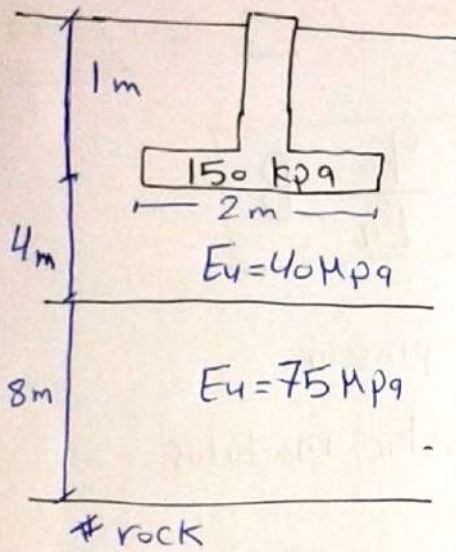 1m
150 kpa
2m
4m
Eu=40Mpa
8m
Eu=75Mpa
# rock